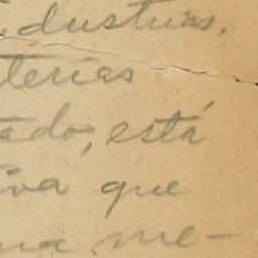 industrias.
terias
ado, está
iva que
na me-